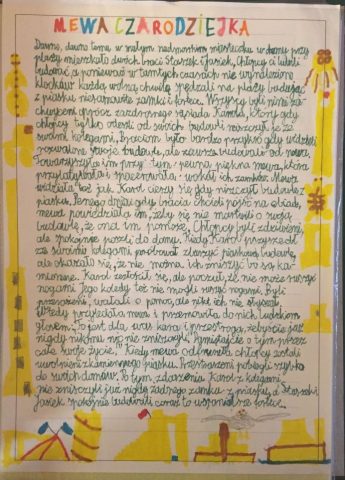 MEWA CZARODZIEJKA
Dawno, dawno temu, w małym nadmorskim miasteczku w domu przy
plaży mieszkało dwóch braci Staszek i Jasiek, chłopcy ci lubili
budować a ponieważ w tamtych czasach nie wynaleziono
klocków każdą wolną chwilę spędzali na plaży budując
z piasku niesamowite zamki i fortece. Wszyscy byli nimi za-
chwyceni oprócz zazdrosnego sąsiada Karola, który gdy
chłopcy tylko odeszli od swoich budowli niszczył je ze
swoimi kolegami. Braciom było bardzo przykro gdy widzieli
rozwalone swoje budowle, ale zawsze budowali od nowa.
Towarzyszyła im przy tym pewna piękna mewa, która
przylatywała i spacerowała wokół ich zamków. Mewa
widziała też jak Karol cieszy się gdy niszczył budowle z
piasku. Pewnego dnia gdy bracia chcieli pójść na obiad,
mewa powiedziała im, żeby się nie martwili o swoją
budowlę, że ona im pomoże. Chłopcy byli zdziwieni,
ale spokojnie poszli do domu. Kiedy Karol przyszedł
ze swoimi kolegami, próbował zburzyć piaskową budowlę,
ale okazało się, że nie można ich zniszczyć bo są ka-
mienne. Karol zezłościł się, ale poczuł, że nie może ruszyć
nogami. Jego koledzy też nie mogli ruszyć nogami. Byli
przerażeni, wołali o pomoc, ale nikt ich nie słyszał.
Wtedy przyleciała mewa i przemówiła do nich ludzkim
głosem: "To jest dla was kara i przestroga, żebyście już
nigdy nikomu nic nie zniszczyli, "pamiętajcie o tym przez
całe swoje życie." Kiedy mewa odleciała chłopcy zostali
uwolnieni z kamiennego piasku. Przestraszeni pobiegli szybko
do swoich domów. Od tego zdarzenia Karol z kolegami
nie zniszczyli już nigdy żadnego zamku z piasku, a Staszek i
Jasiek spokojnie budowali coraz to wspanialsze fortece.